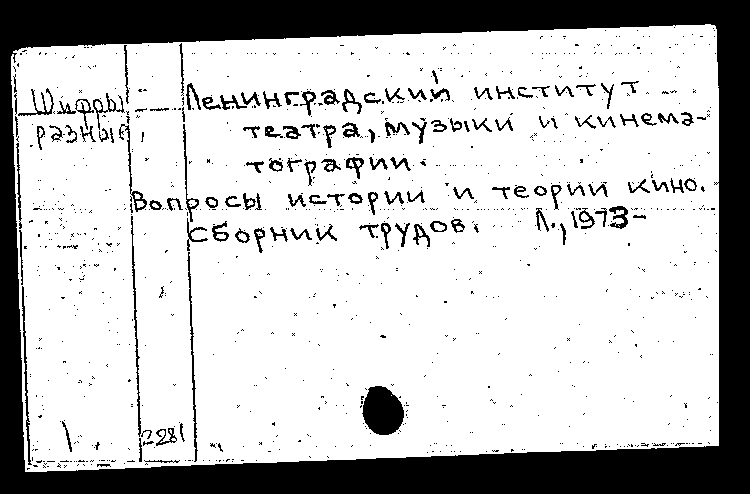 Шифры Ленинградский институт
разные, театра, музыки и кинема-
тографии.
Вопросы истории и теории кино.
Сборник трудов. Л., 1973-
2281